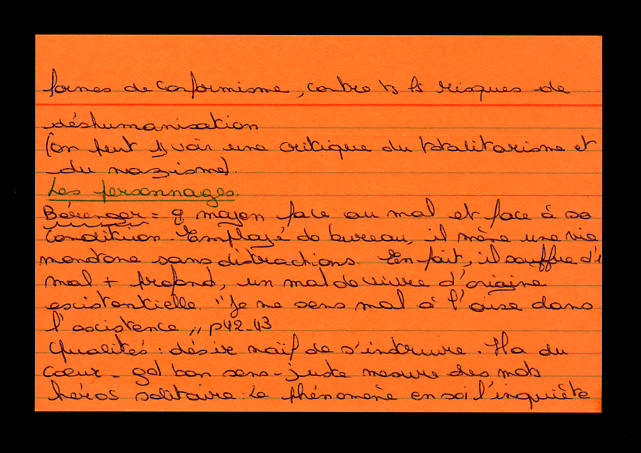 formes de conformisme, contre ts ls risques de
déshumanisation
(on peut y voir une critique du totalitarisme et
du nazisme).
Les personnages.
Bérenger = moyen face au mal et face à sa
condition. Employé de bureau, il mène une vie
monotone sans distractions. En fait, il souffre d'1
mal + profond, un mal de vivre d'origine
existentielle. "Je me sens mal à l'aise dans
l'existence" p42-43
Qualités : désir naïf de s'instruire. Il a du
coeur - gd bon sens - juste mesure des mots
héros solitaire. Le phénomène en soi l'inquiète